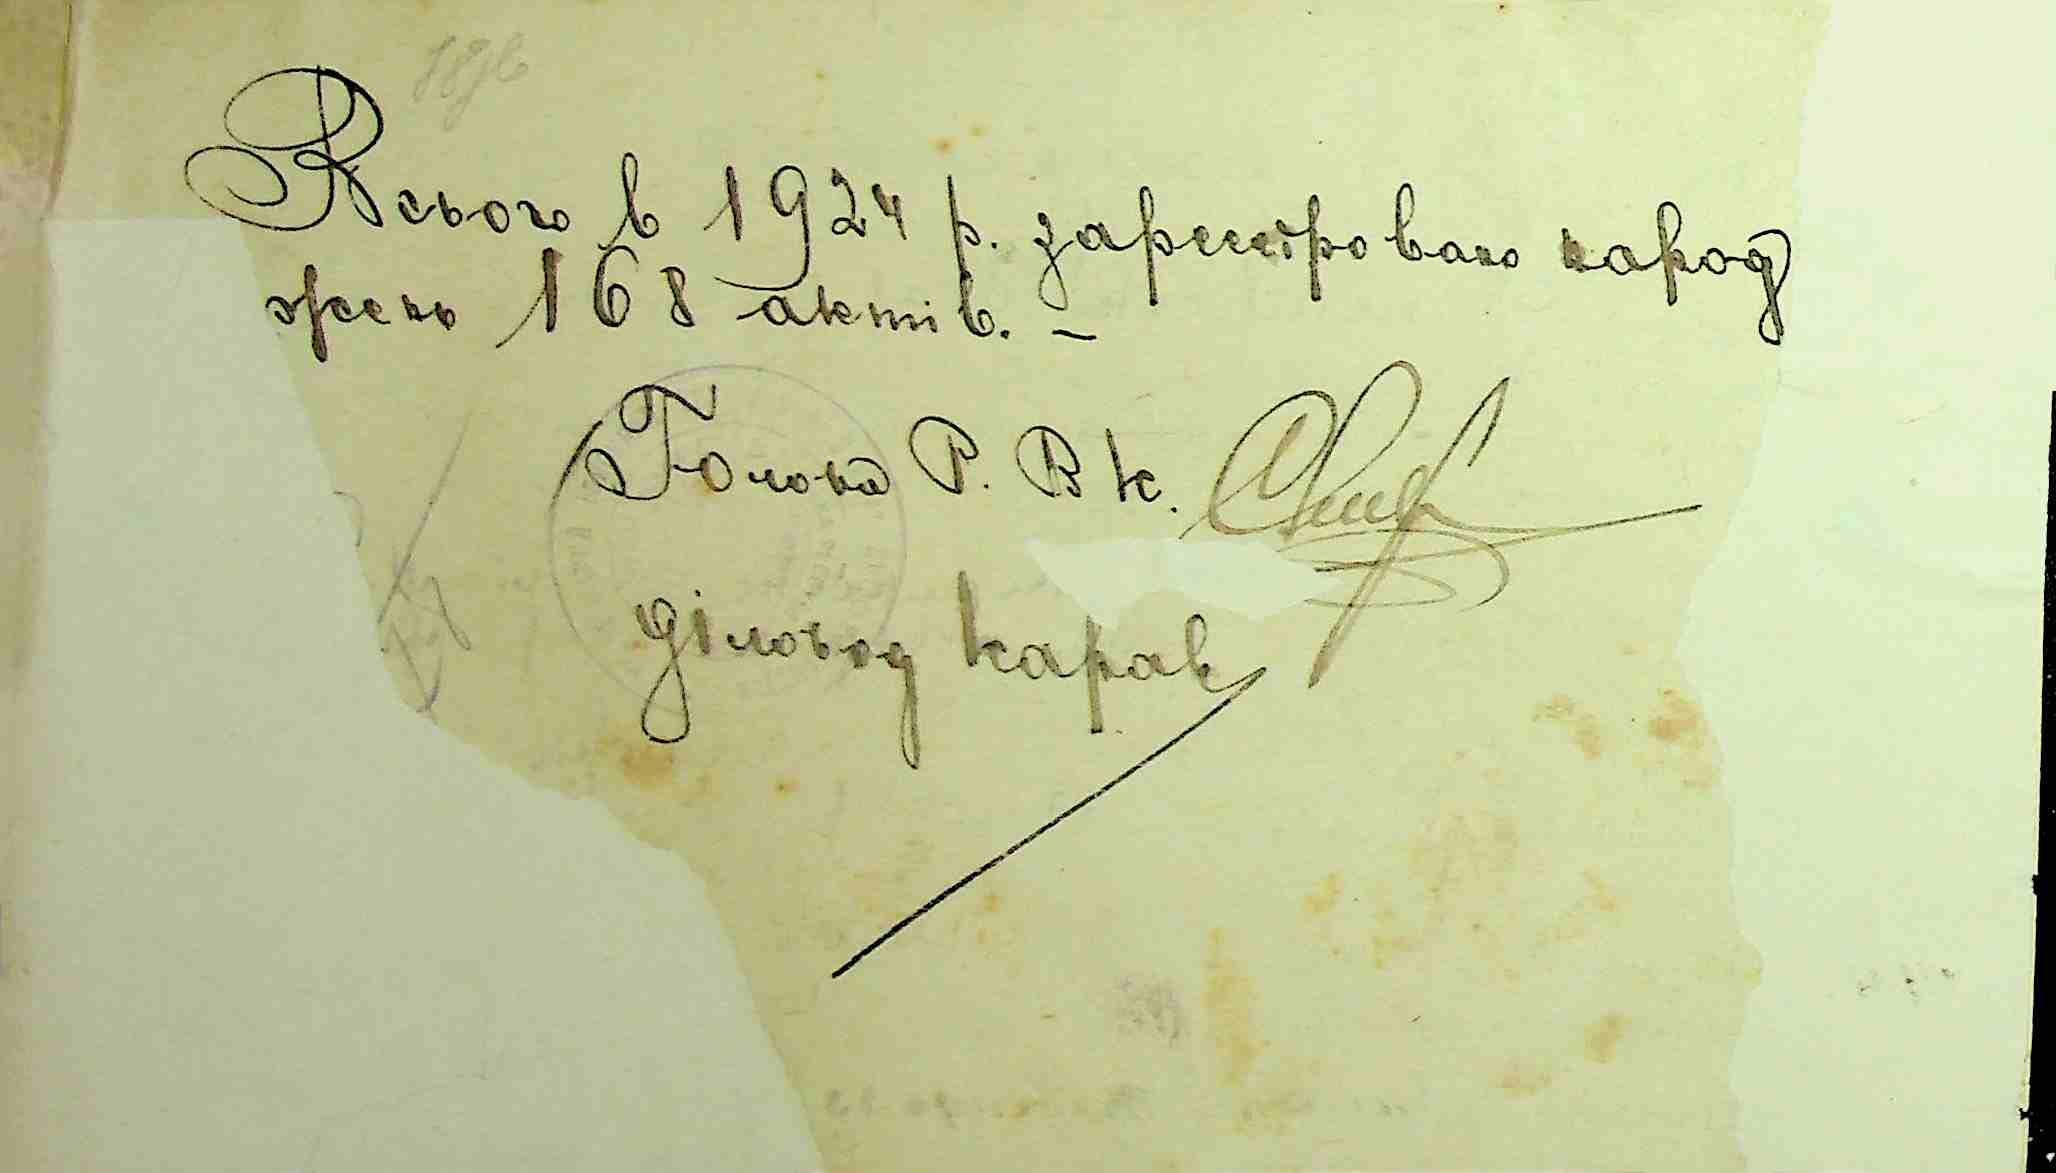 Всього в 1924 р. зареєстровано народ
жень 168 актів. –
Голова Р. Вк.
Діловод